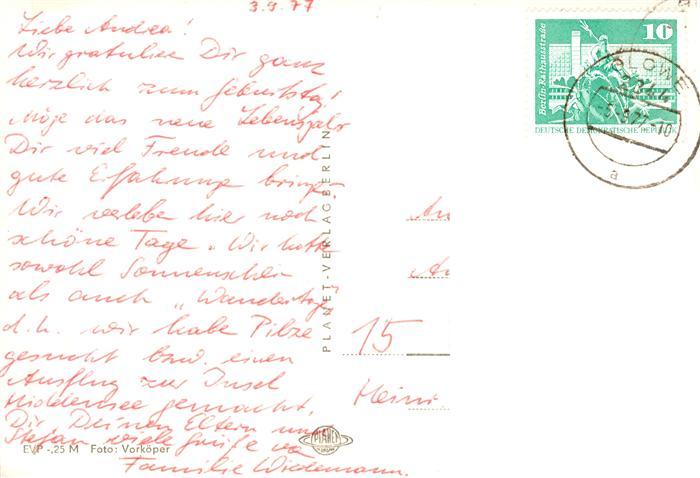 3.9.77
Liebe Andrea!
Wir gratulieren Dir ganz
herzlich zum Geburtstag!
Möge das neue Lebensjahr
Dir viel Freude und
gute Erfahrung bringen.
Wir verleben hier noch
schöne Tage. Wir hatten
sowohl Sonnenschein
als auch „Wandertage"
d.h. wir haben Pilze
gesucht bzw. einen
Ausflug zur Insel
Hiddensee gemacht.
Dir, Deinen Eltern und
Stefan viele Grüße von
Familie Wiedemann.
EVP -,25 M Foto: Vorköper
PLANET-VERLAG BERLIN
PLANET
BERLIN
An
15
Heini
10
Berlin-Rathausstraße
DEUTSCHE DEMOKRATISCHE REPUBLIK
LOWE
-5.-9.77-10
a